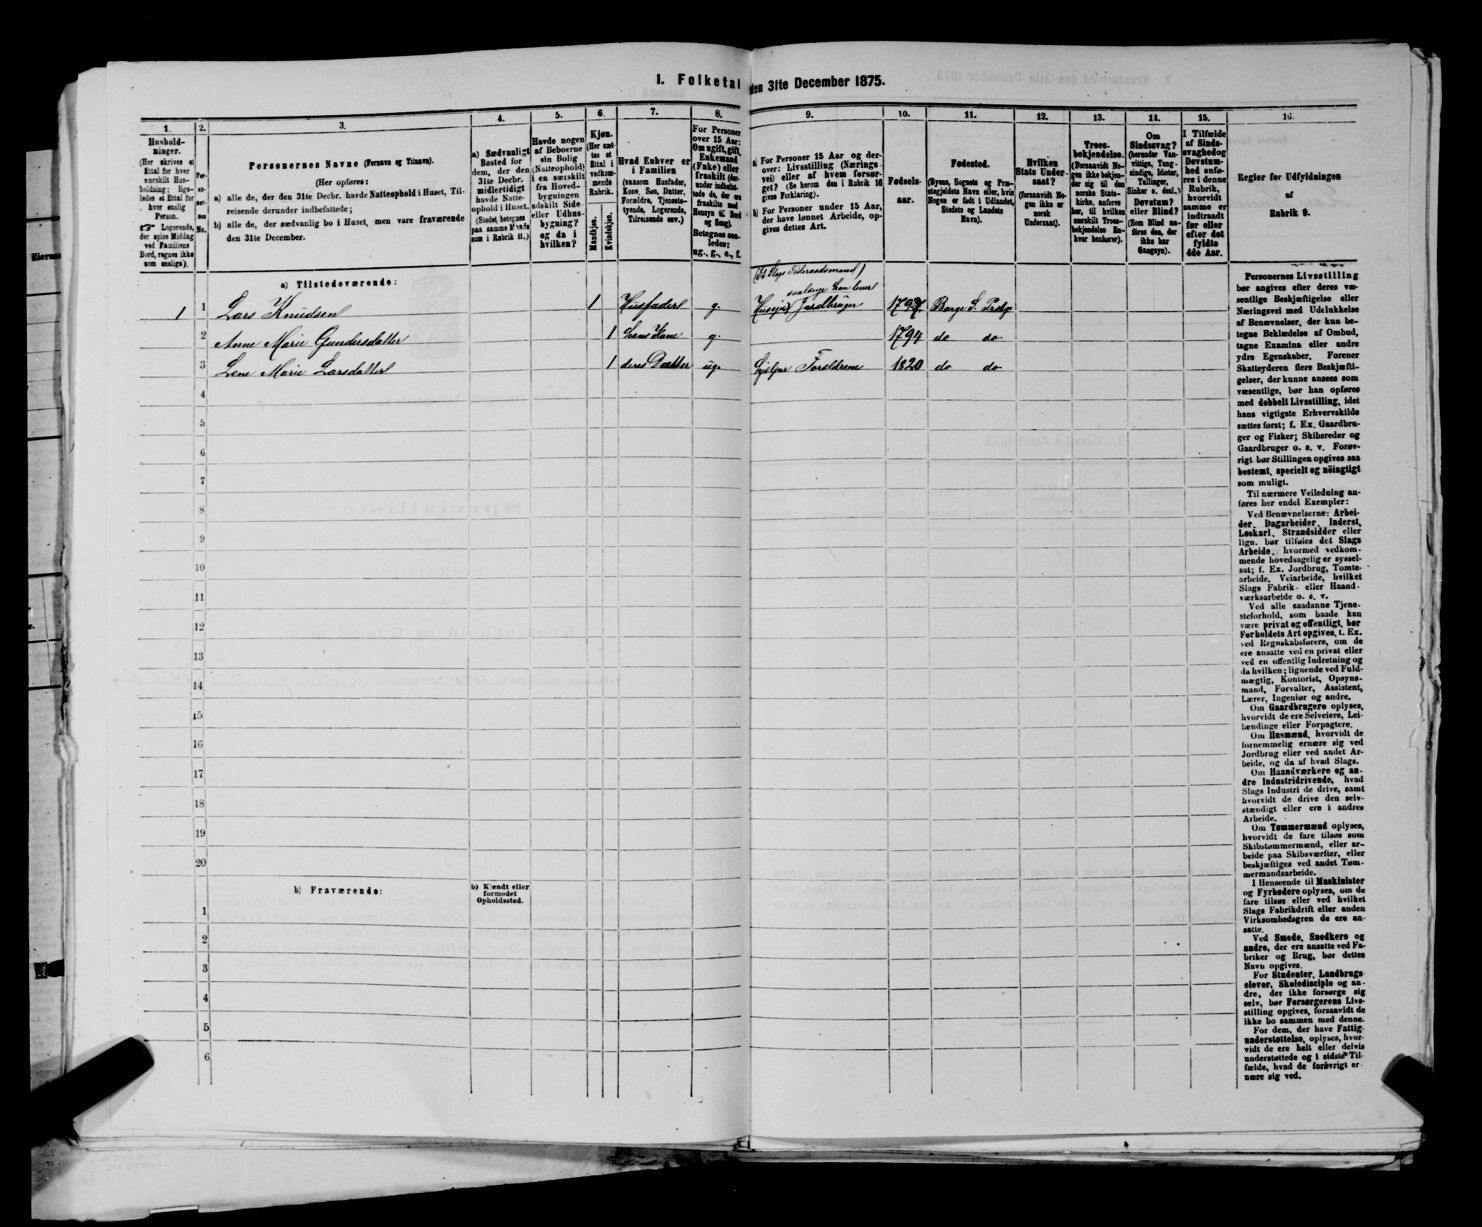 1. Folketal den 31te December 1875.
1.
2.
3.
4.
5.
6.
7.
8.
9.
10.
11.
12.
13.
14.
15.
16.
Hushold-
ninger.
(Her skrives et
Ettal for hver
særskilt Hus-
holdning; lige-
ledes et Ettal for
hver enslig
Person.
☞ Logerende,
der spise Middag
ved Familiens
Bord, regnes ikke
som enslige).
Per-
so-
ner-
nes
No.
Personernes Navne (Fornavn og Tilnavn).
(Her opføres:
a) alle de, der den 31te Decbr. havde Natteophold i Huset, Til-
reisende derunder indbefattede;
b) alle de, der sædvanlig bo i Huset, men vare fraværende
den 31te December.
a) Sædvanligt
Bosted for
dem, der den
31te Decbr.
midlertidigt
havde Natte-
ophold i Huset.
(Stedet betegnes
paa samme Maade
som i Rubrik 11.)
Havde nogen
af Beboerne
sin Bolig
(Natteophold)
i en særskilt
fra Hoved-
bygningen
adskilt Side
eller Udhus-
bygning?
og da i
hvilken?
Kjøn.
(Her sæt-
tes et
Ettal i
vedkom-
mende
Rubrik.
Mandkjøn.
Kvindekjøn.
Hvad Enhver er
i Familien
(saasom Husfader,
Kone, Søn, Datter,
Forældre, Tjeneste-
tyende, Logerende,
Tilreisende osv.)
For Personer
over 15 Aar:
Om ugift, gift,
Enkemand
(Enke) eller
fraskilt (der-
under indbefat-
tede de, der ere
fraskilte med
Hensyn til Bord
og Seng).
Betegnes saa-
ledes:
ug., g., e., f.
a) For Personer 15 Aar og der-
over: Livsstilling (Nærings-
vei) eller af hvem forsør-
get? (Se herom den i Rubrik 16
givne Forklaring).
b) For Personer under 15 Aar,
der have lønnet Arbeide, op-
gives dettes Art.
Fødsels-
aar.
Fødested.
(Byens, Sognets og Præ-
stegjeldets Navn eller, hvis
Nogen er født i Udlandet,
Stedets og Landets
Navn).
Hvilken
Stats Under-
saat?
(forsaavidt No-
gen ikke er
norsk
Undersaat).
Troes-
bekjendelse.
(Forsaavidt No-
gen ikke bekjen-
der sig til den
norske Stats-
kirke, anføres
her, til hvilken
særskilt Troes-
bekjendelse En-
hver henhører).
Om
Sindssvag?
(herunder Van-
vittige, Tung-
sindige, Idioter,
Tullinger,
Sinker o. desl.)
Døvstum?
eller Blind?
(Som Blind an-
føres den, der
ikke har
Gangsyn).
I Tilfælde
af Sinds-
svaghed og
Døvstum-
hed anfø-
res i denne
Rubrik,
hvorvidt
samme er
indtraadt
før eller
efter det
fyldte
4de Aar.
Regler for Udfyldningen
af
Rubrik 9.
a) Tilstedeværende:
1 1 Lars Knudsen 1 Husfader g. Huseier Jordbruger 1797 Borge S. Prstgj
2 Anne Marie Gundersdatter 1 hans Kone g. 1794 do do
3 Lene Marie Larsdatter 1 deres Datter ug. hjelper Forældrene 1820 do do
4
5
6
7
8
9
10
11
12
13
14
15
16
17
18
19
20
b) Fraværende:
b) Kjendt eller
formodet
Opholdssted.
1
2
3
4
5
6
Personernes Livsstilling
bør angives efter deres væ-
sentlige Beskjæftigelse eller
Næringsvei med Udelukkelse
af Benævnelser, der kun be-
tegne Beklædelse af Ombud,
tagne Examina eller andre
ydre Egenskaber. Forener
Skatteyderen flere Beskjæfti-
gelser, der kunne ansees som
væsentlige, bør han opføres
med dobbelt Livsstilling, idet
hans vigtigste Erhvervskilde
sættes først; f. Ex. Gaardbru-
ger og Fisker; Skibsreder og
Gaardbruger o. s. v. Forøv-
rigt bør Stillingen opgives saa
bestemt, specielt og nöiagtigt
som muligt.
Til nærmere Veiledning an-
føres her endel Exempler:
Ved Benævnelserne: Arbei-
der, Dagarbeider, Inderst,
Løskarl, Strandsidder eller
lign. bør tilføies det Slags
Arbeide, hvormed vedkom-
mende hovedsagelig er syssel-
sat; f. Ex. Jordbrug, Tomte-
arbeide, Veiarbeide, hvilket
Slags Fabrik- eller Haand-
værksarbeide o. s. v.
Ved alle saadanne Tjene-
steforhold, som baade kan
være privat og offentligt, bør
Forholdets Art opgives, t. Ex.
ved Regnskabsførere, om de
ere ansatte ved en privat eller
ved en offentlig Indretning og
da hvilken; lignende ved Fuld-
mægtig, Kontorist, Opsyns-
mand, Forvalter, Assistent,
Lærer, Ingeniør og andre.
Om Gaardbrugere oplyses,
hvorvidt de ere Selveiere, Lei-
lændinge eller Forpagtere.
Om Husmænd, hvorvidt de
fornemmelig ernære sig ved
Jordbrug eller ved andet Ar-
beide, og da af hvad Slags.
Om Haandværkere og an-
dre Industridrivende, hvad
Slags Industri de drive, samt
hvorvidt de drive den selv-
stændigt eller ere i andres
Arbeide.
Om Tømmermænd oplyses,
hvorvidt de fare tilsøs som
Skibstømmermænd, eller ar-
beide paa Skibsværfter, eller
beskjæftiges ved andet Tøm-
mermandsarbeide.
I Henseende til Maskinister
og Fyrbødere oplyses, om de
fare tilsøs eller ved hvilket
Slags Fabrikdrift eller anden
Virksomhedsgren de ere an-
satte.
Ved Smede, Snedkere og
andre, der ere ansatte ved Fa-
briker og Brug, bør dettes
Navn opgives.
For Studenter, Landbrugs-
elever, Skoledisciple og an-
dre, der ikke forsørge sig
selv, bør Forsørgerens Livs-
stilling opgives, forsaavidt de
ikke bo sammen med denne.
For dem, der have Fattig-
understøttelse, oplyses, hvor-
vidt de ere helt eller delvis
understøttede og i sidste Til-
fælde, hvad de forøvrigt er-
nære sig ved.